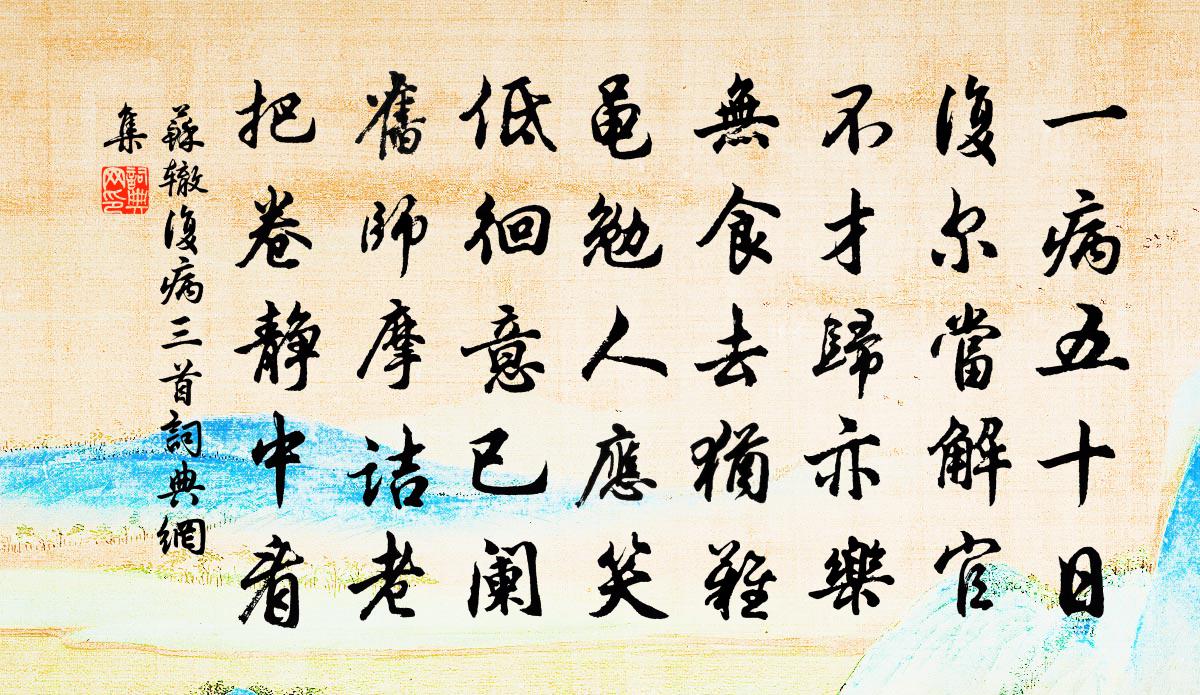 一病五十日
復尔當解官
不才歸亦樂
無食去猶難
黽勉人應笑
低徊意已阑
舊師摩诘老
把卷静中看
蘇辙復病三首詞典網
集
詞典
网印